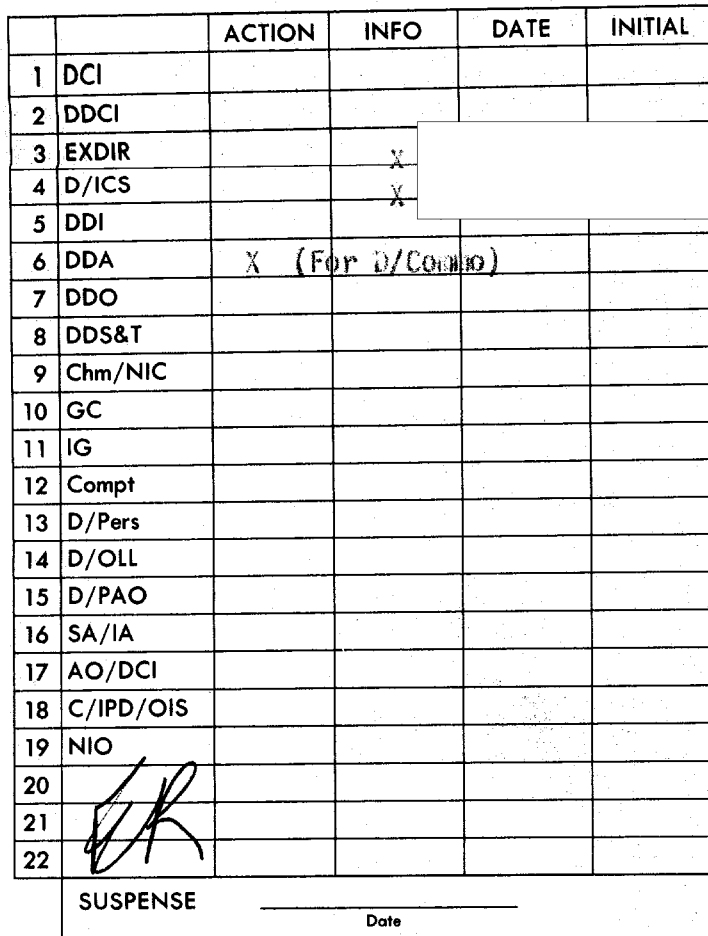 ACTION INFO DATE INITIAL
1 DCI
2 DDCI
3 EXDIR X
4 D/ICS X
5 DDI
6 DDA X (For D/Commo)
7 DDO
8 DDS&T
9 Chm/NIC
10 GC
11 IG
12 Compt
13 D/Pers
14 D/OLL
15 D/PAO
16 SA/IA
17 AO/DCI
18 C/IPD/OIS
19 NIO
20
21 ER
22
SUSPENSE
Date